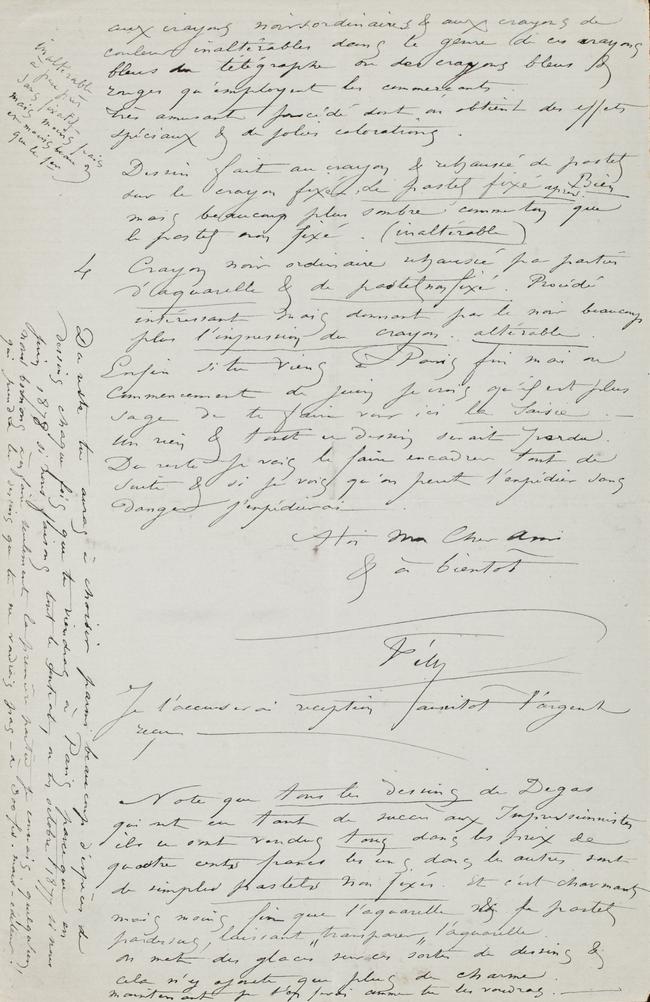 aux crayons noirs ordinaires & aux crayons de
couleur inaltérables dans le genre de ces crayons
bleus du télégraphe ou des crayons bleus &
rouges qu'employent les commerçants
très amusant procédé dont on obtient des effets
spéciaux & de jolies colorations.
Dessin fait au crayon & rehaussé de pastel
sur le crayon fixé, de pastel fixé après. Bien
mais beaucoup plus sombre comme ton que
le pastel non fixé. (inaltérable)
4 Crayon noir ordinaire rehaussé par parties
d'aquarelle & de pastel non fixé. Procédé
intéressant mais donnant par le noir beaucoup
plus l'impression du crayon. altérable.
Enfin si tu viens à Paris fin mai ou
commencement de juin je crois qu'il est plus
sage de te faire voir ici la Saisie. —
un rien & tout ce dessin serait perdu.
Du reste je vais le faire encadrer tout de
suite & si je vois qu'on peut l'expédier sans
danger j'expédierai —
à toi mon cher ami
& à bientôt
Fély
Je t'accuserai réception aussitôt l'argent
reçu —
Note que tous les dessins de Degas
qui ont eu tant de succès aux Impressionnistes
ils se sont vendus tous dans les prix de
quatre cents francs les uns dans les autres sont
de simples pastels non fixés. Et c'est charmant
mais moins fin que l'aquarelle & le pastel
pardessus, laissant "transparer" l'aquarelle.
on met des glaces sur ces sortes de dessins &
cela n'y ajoute que plus de charme.
maintenant je t'en ferai comme tu les voudras. —
inaltérable
à peu près
sans fixatif
mais moins frais
et moins beau
que le
Du reste tu auras à choisir parmi beaucoup d'espèces de
dessins chaque fois que tu viendras à Paris parce que en
juin 1878 si nous faisons tout le fini ou en octobre 1877 si nous
nous bornons à en faire seulement la première partie je connais quelqu'un
qui prendra les dessins que tu ne voudrais pas — à 300 frs.